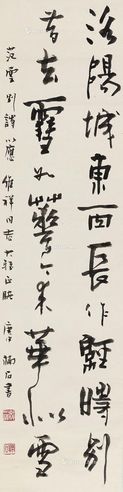 洛陽城東西長作經時別
昔去雪如華今來華似雪
范雲別詩以應 維祥同志大雅正腕 庚申 石書